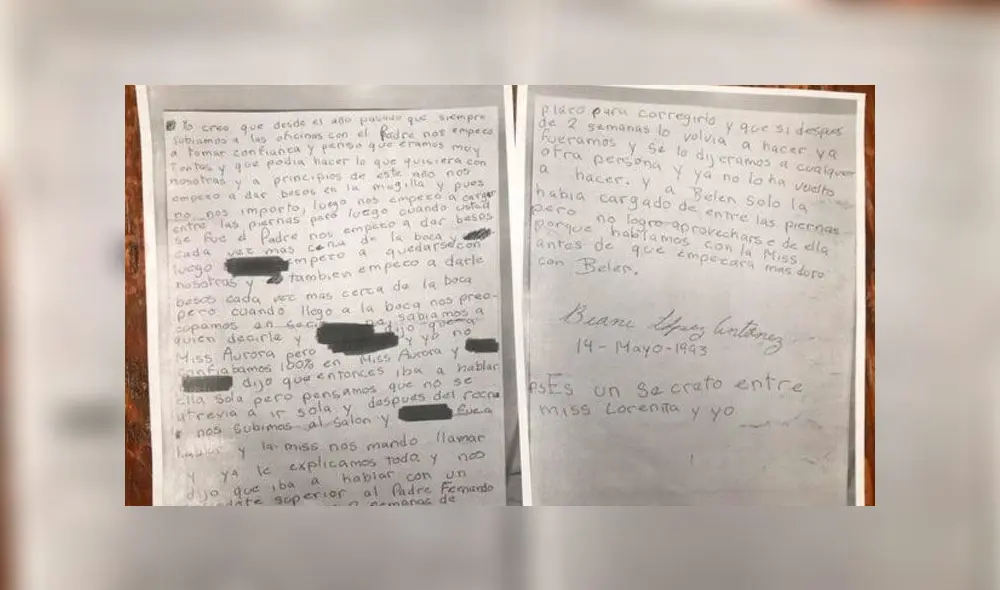 Yo creo que desde el año pasado que siempre
subiamos a las oficinas con el Padre nos empeco
a tomar confianza y penso que eramos muy
tontas y que podia hacer lo que quisiera con
nosotras y a principios de este año nos
empeco a dar besos en la megilla y pues
no nos importo, luego nos empeco a cargar
entre las piernas pero luego cuando usted
se fue el Padre nos empeco a dar besos
cada vez mas cerca de la boca y
luego empeco a quedarse con
nosotras y tambien empeco a darle
besos cada vez mas cerca de la boca
pero cuando llego a la boca nos preo-
cupamos en sabiamos a
quien decirle y dijo que a
Miss Aurora pero y yo no
confiabamos 100% en Miss Aurora y
dijo que entonces iba a hablar
ella sola pero pensamos que no se
atrevia a ir sola y despues del
nos subimos al salon y fue a
y la miss nos mando llamar
y ya le explicamos todo y nos
dijo que iba a hablar con un
superior al Padre Fernando
semanas de
plazo para corregirlo y que si despues
de 2 semanas lo volvia a hacer ya
fueramos y se lo dijeramos a cualquier
otra persona y ya no lo ha vuelto
a hacer. y a Belen solo la
habia cargado de entre las piernas
pero no logro aprovecharse de ella
porque hablamos con la Miss
antes de que empezara mas duro
con Belen.
Biani López Antúnez
14-Mayo-1993
PS Es un secreto entre
miss Lorenita y yo